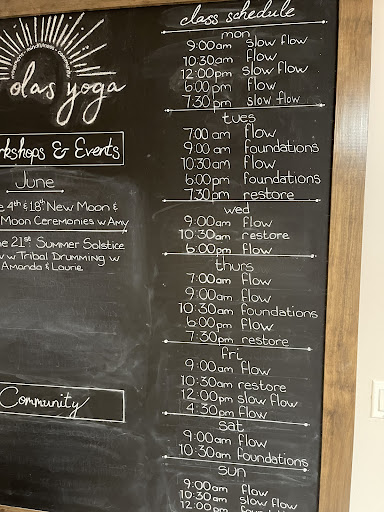 movement · mindfulness · community
olas yoga
rkshops & Events
June
e 4th & 18th New Moon &
Moon Ceremonies w Amy
ne 21st Summer Solstice
w w Tribal Drumming w
Amanda & Laurie
Community
class schedule
mon
9:00am slow flow
10:30am flow
12:00pm slow flow
6:00pm flow
7:30pm slow flow
tues
7:00am flow
9:00am foundations
10:30am flow
6:00pm foundations
7:30pm restore
wed
9:00am flow
10:30am restore
6:00pm flow
thurs
7:00am flow
9:00am flow
10:30am foundations
6:00pm flow
7:30pm restore
fri
9:00am flow
10:30am restore
12:00pm slow flow
4:30pm flow
sat
9:00am flow
10:30am foundations
sun
9:00am flow
10:30am slow flow
12:00pm foundations